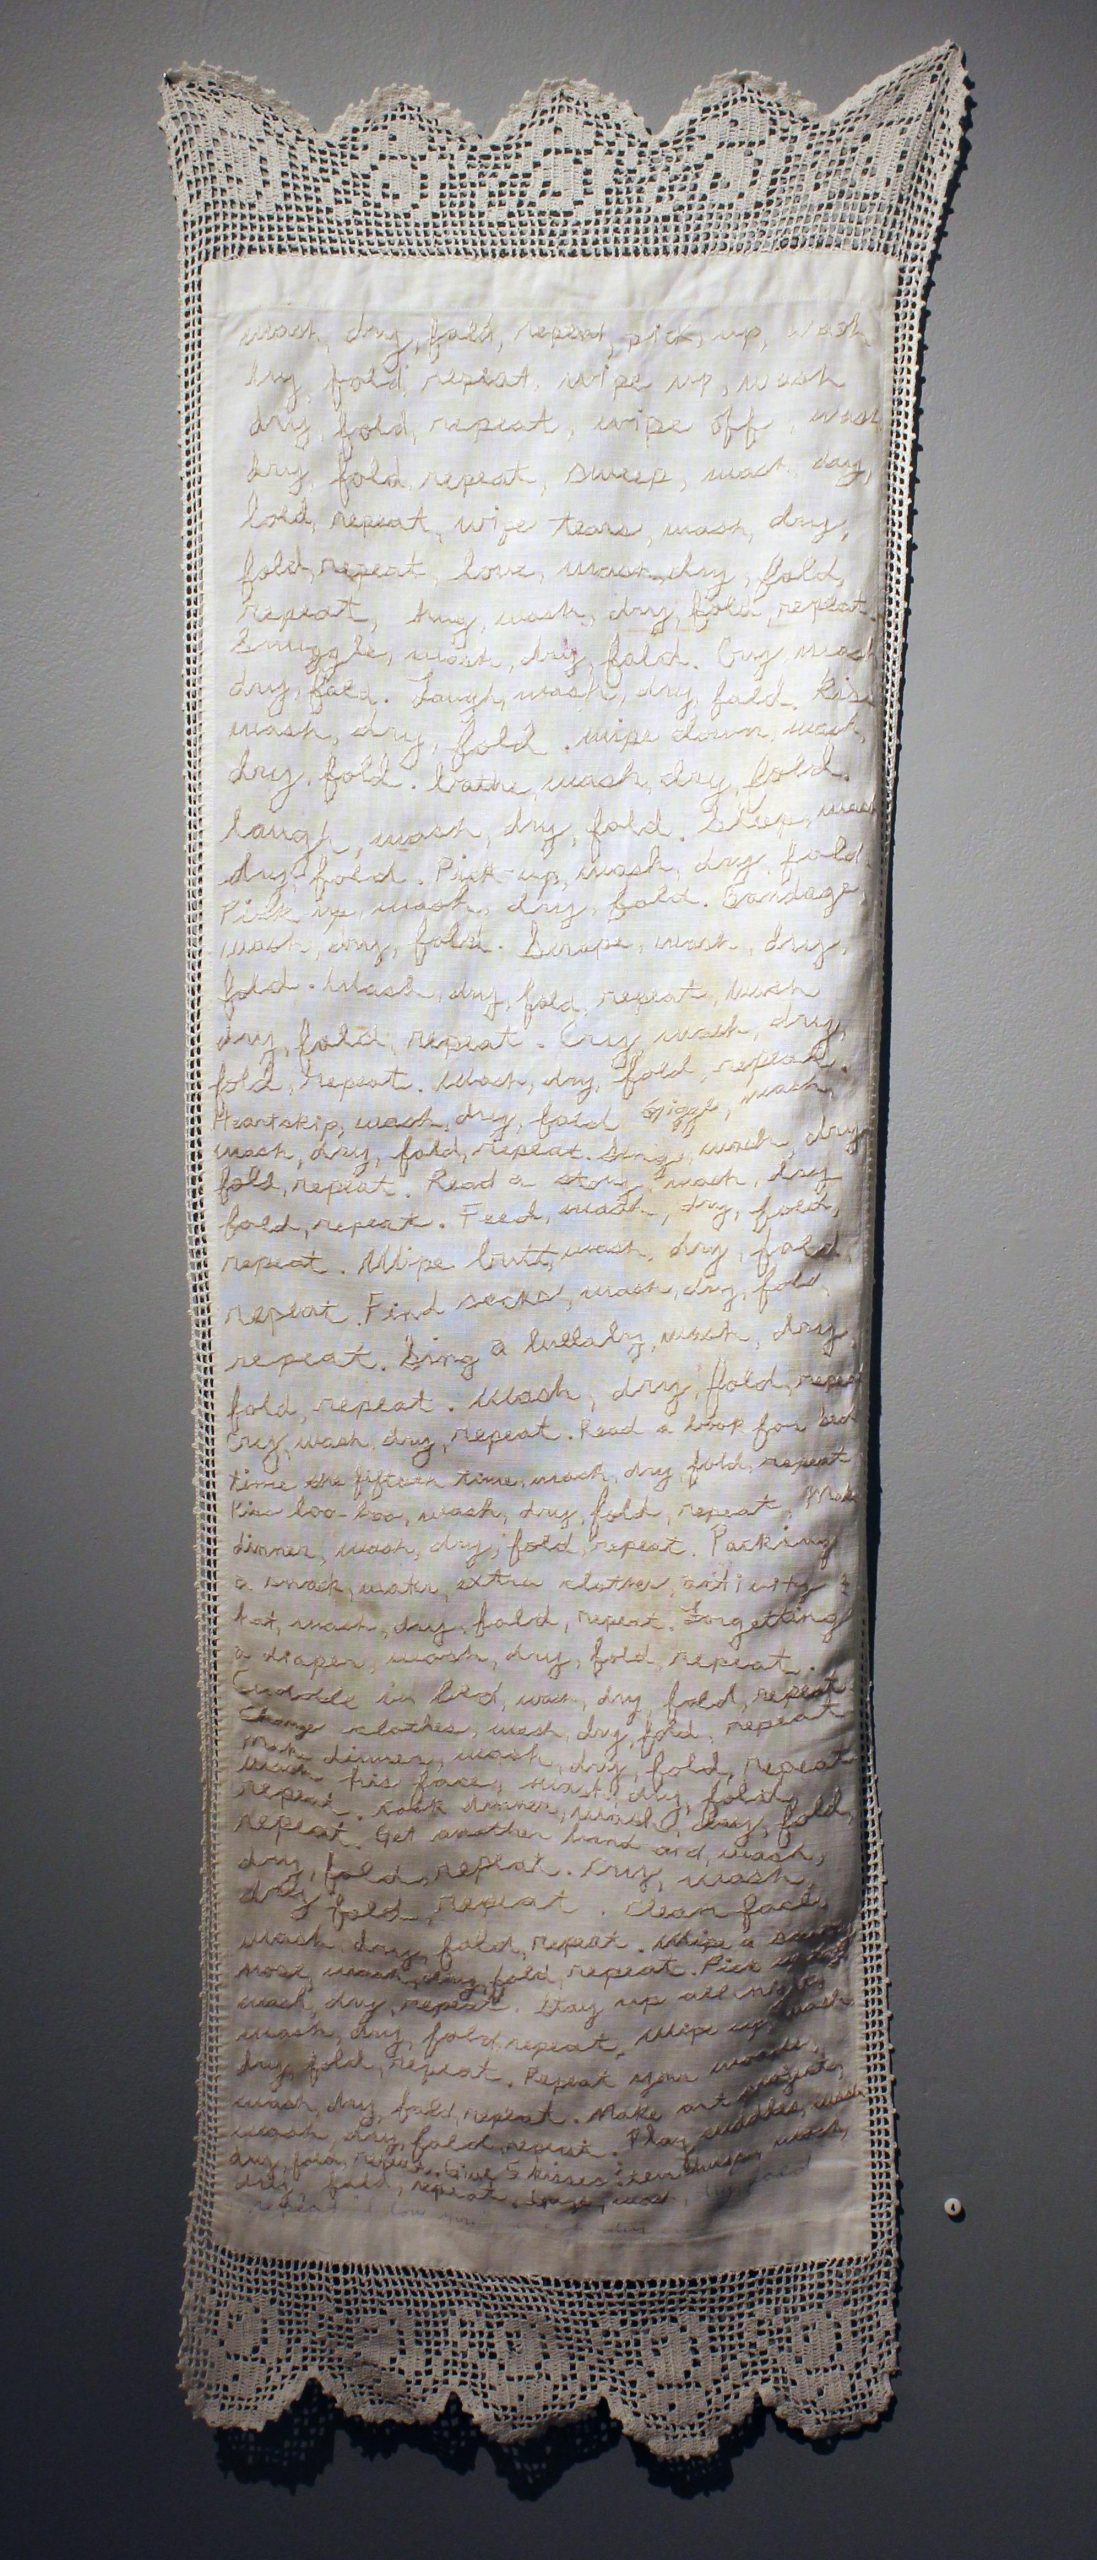 wash, dry, fold, repeat, pick up, wash,
dry, fold, repeat, wipe up, wash
dry, fold, repeat, wipe off, wash
dry, fold, repeat, sweep, wash, dry,
fold, repeat, wipe tears, wash, dry,
fold, repeat, love, wash, dry, fold,
repeat, hug, wash, dry, fold, repeat.
Snuggle, wash, dry, fold. Cry, wash
dry, fold. Laugh, wash, dry, fold. Kiss
wash, dry, fold. wipe down, wash,
dry, fold. bathe, wash, dry, fold.
laugh, wash, dry, fold. Sleep, wash
dry, fold. Pick up, wash, dry, fold.
Pick up, wash, dry, fold. Bandage,
wash, dry, fold. Scrape, wash, dry,
fold. Wash, dry, fold, repeat, wash
dry, fold, repeat. Cry, wash, dry,
fold, repeat. Wash, dry, fold, repeat.
Heartskip, wash, dry, fold wash,
wash, dry, fold, repeat. Sing, wash, dry
fold, repeat. Read a story, wash, dry
fold, repeat. Feed, wash, dry, fold,
repeat. Wipe butt, wash, dry, fold,
repeat. Find socks, wash, dry, fold,
repeat. Sing a lullaby, wash, dry
fold, repeat. Wash, dry, fold, repeat
Cry, wash, dry, repeat. Read a book for bed
time the fifteen time, wash, dry, fold, repeat
Kiss boo-boo, wash, dry, fold, repeat, Make
dinner, wash, dry, fold, repeat. Packing
a snack, water, extra clothes, activity &
hat, wash, dry, fold, repeat. Forgetting
a diaper, wash, dry, fold, repeat.
Cuddle in bed, wash, dry, fold, repeat
Change clothes, wash, dry, fold, repeat
Make dinner, wash, dry, fold, repeat
Wash his face, wash, dry, fold,
repeat. Cook dinner, wash, dry, fold,
repeat. Get another band aid, wash,
dry, fold, repeat. Cry, wash,
dry fold, repeat. Clean face,
wash, dry, fold, repeat. Wipe a
nose, wash, dry, fold, repeat. Pick
wash, dry, repeat. Stay up all night,
wash, dry, fold, repeat. Wipe up, wash
dry, fold, repeat. Repeat your
wash, dry, fold, repeat. Make art project,
wash, dry, fold, repeat. Play wash
dry, fold, repeat. Give 5 kisses wash,
dry, fold, repeat. wash, fold
repeat